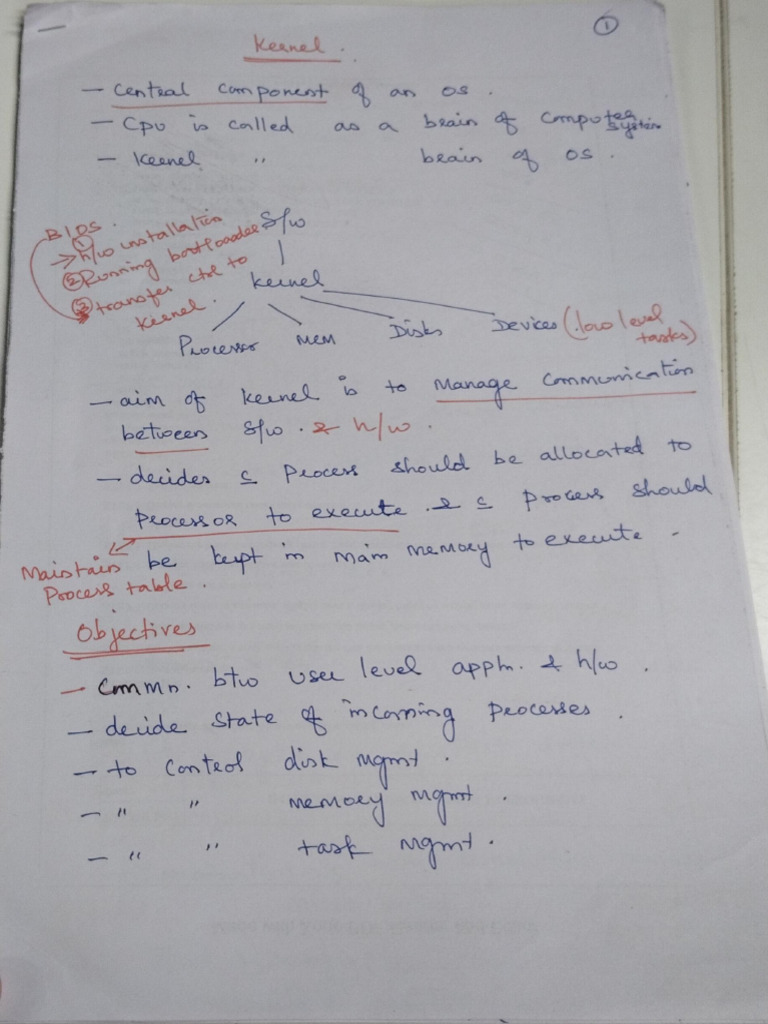 1
Kernel.
- Central Component of an OS.
- CPU is called as a brain of Computer System
- Kernel " brain of OS.
BIOS.
① h/w installation
② Running bootloader
③ transfer ctrl to
Kernel.
S/w
Kernel
Processor Mem Disks Devices (low level
tasks)
- aim of kernel is to Manage Communication
between S/w. & h/w.
- decides c Process should be allocated to
Processor to execute. & c process should
be kept in main memory to execute.
Maintain
Process table.
Objectives
- Commn. btw user level appln. & h/w.
- decide State of incoming Processes.
- to Control disk mgmt.
- " " memory mgmt.
- " " task mgmt.